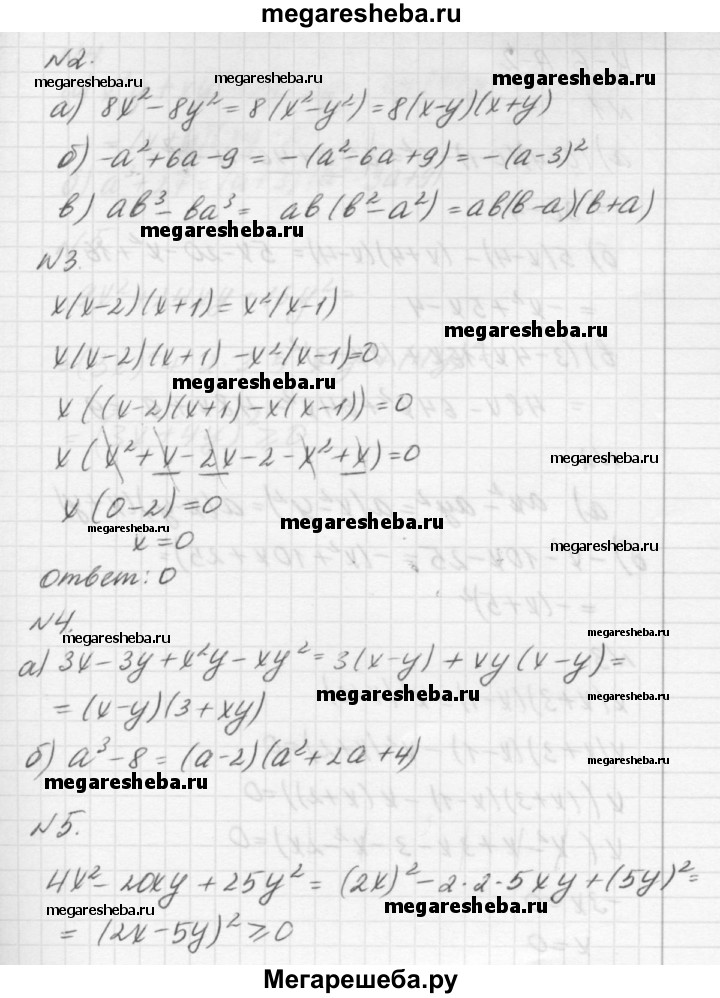 megaresheba.ru
№2.
megaresheba.ru megaresheba.ru megaresheba.ru
а) 8x² - 8y² = 8(x² - y²) = 8(x-y)(x+y)
б) -a² + 6a - 9 = -(a² - 6a + 9) = -(a-3)²
в) ab³ - ba³ = ab(b² - a²) = ab(b-a)(b+a)
megaresheba.ru megaresheba.ru
№3.
x(x-2)(x+1) = x²(x-1)
megaresheba.ru
x(x-2)(x+1) - x²(x-1) = 0
megaresheba.ru
x((x-2)(x+1) - x(x-1)) = 0
x(x² + x - 2x - 2 - x² + x) = 0
x(0-2) = 0
megaresheba.ru megaresheba.ru
x = 0
megaresheba.ru
Ответ: 0
№4.
megaresheba.ru megaresheba.ru
а) 3x - 3y + x²y - xy² = 3(x-y) + xy(x-y) =
megaresheba.ru
= (x-y)(3+xy)
б) a³ - 8 = (a-2)(a² + 2a + 4)
megaresheba.ru megaresheba.ru
№5.
4x² - 20xy + 25y² = (2x)² - 2·2·5xy + (5y)² =
megaresheba.ru megaresheba.ru
= (2x-5y)² ≥ 0
Мегарешеба.ру